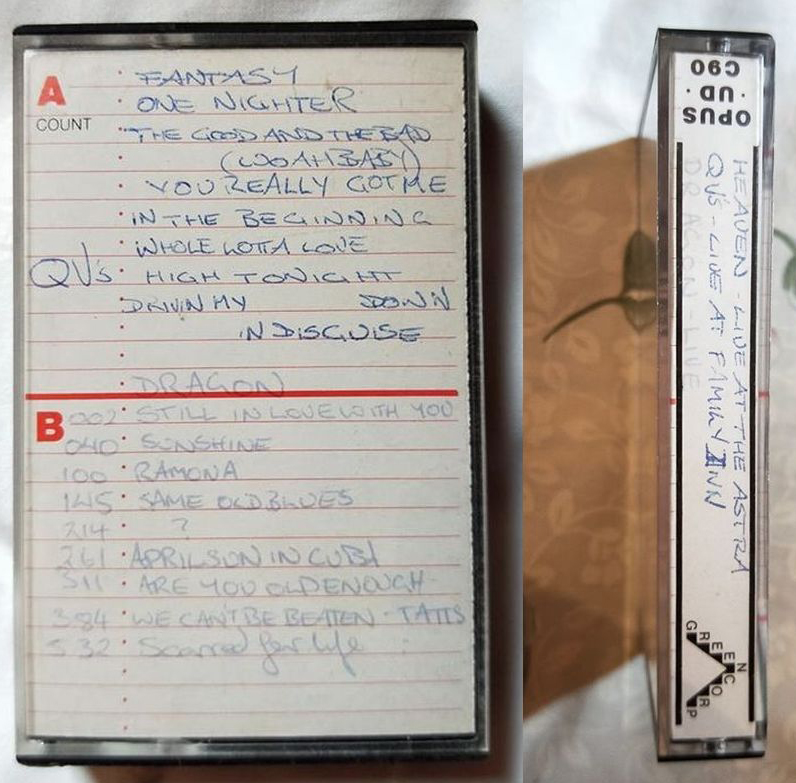 A
COUNT
FANTASY
ONE NIGHTER
THE GOOD AND THE BAD
(WOAH BABY)
YOU REALLY GOT ME
IN THE BEGINNING
WHOLE LOTTA LOVE
QV's HIGH TONIGHT
DRIVIN MY DOWN
IN DISGUISE
DRAGON
B 002 STILL IN LOVE WITH YOU
040 SUNSHINE
100 RAMONA
145 SAME OLD BLUES
214 ?
261 APRIL SUN IN CUBA
311 ARE YOU OLD ENOUGH
384 WE CAN'T BE BEATEN - TATTS
532 Scarred for life
OPUS
· UD ·
C90
HEAVEN - LIVE AT THE ASTRA
QV's - LIVE AT FAMILY INN
DRAGON - LIVE
GREENCORP